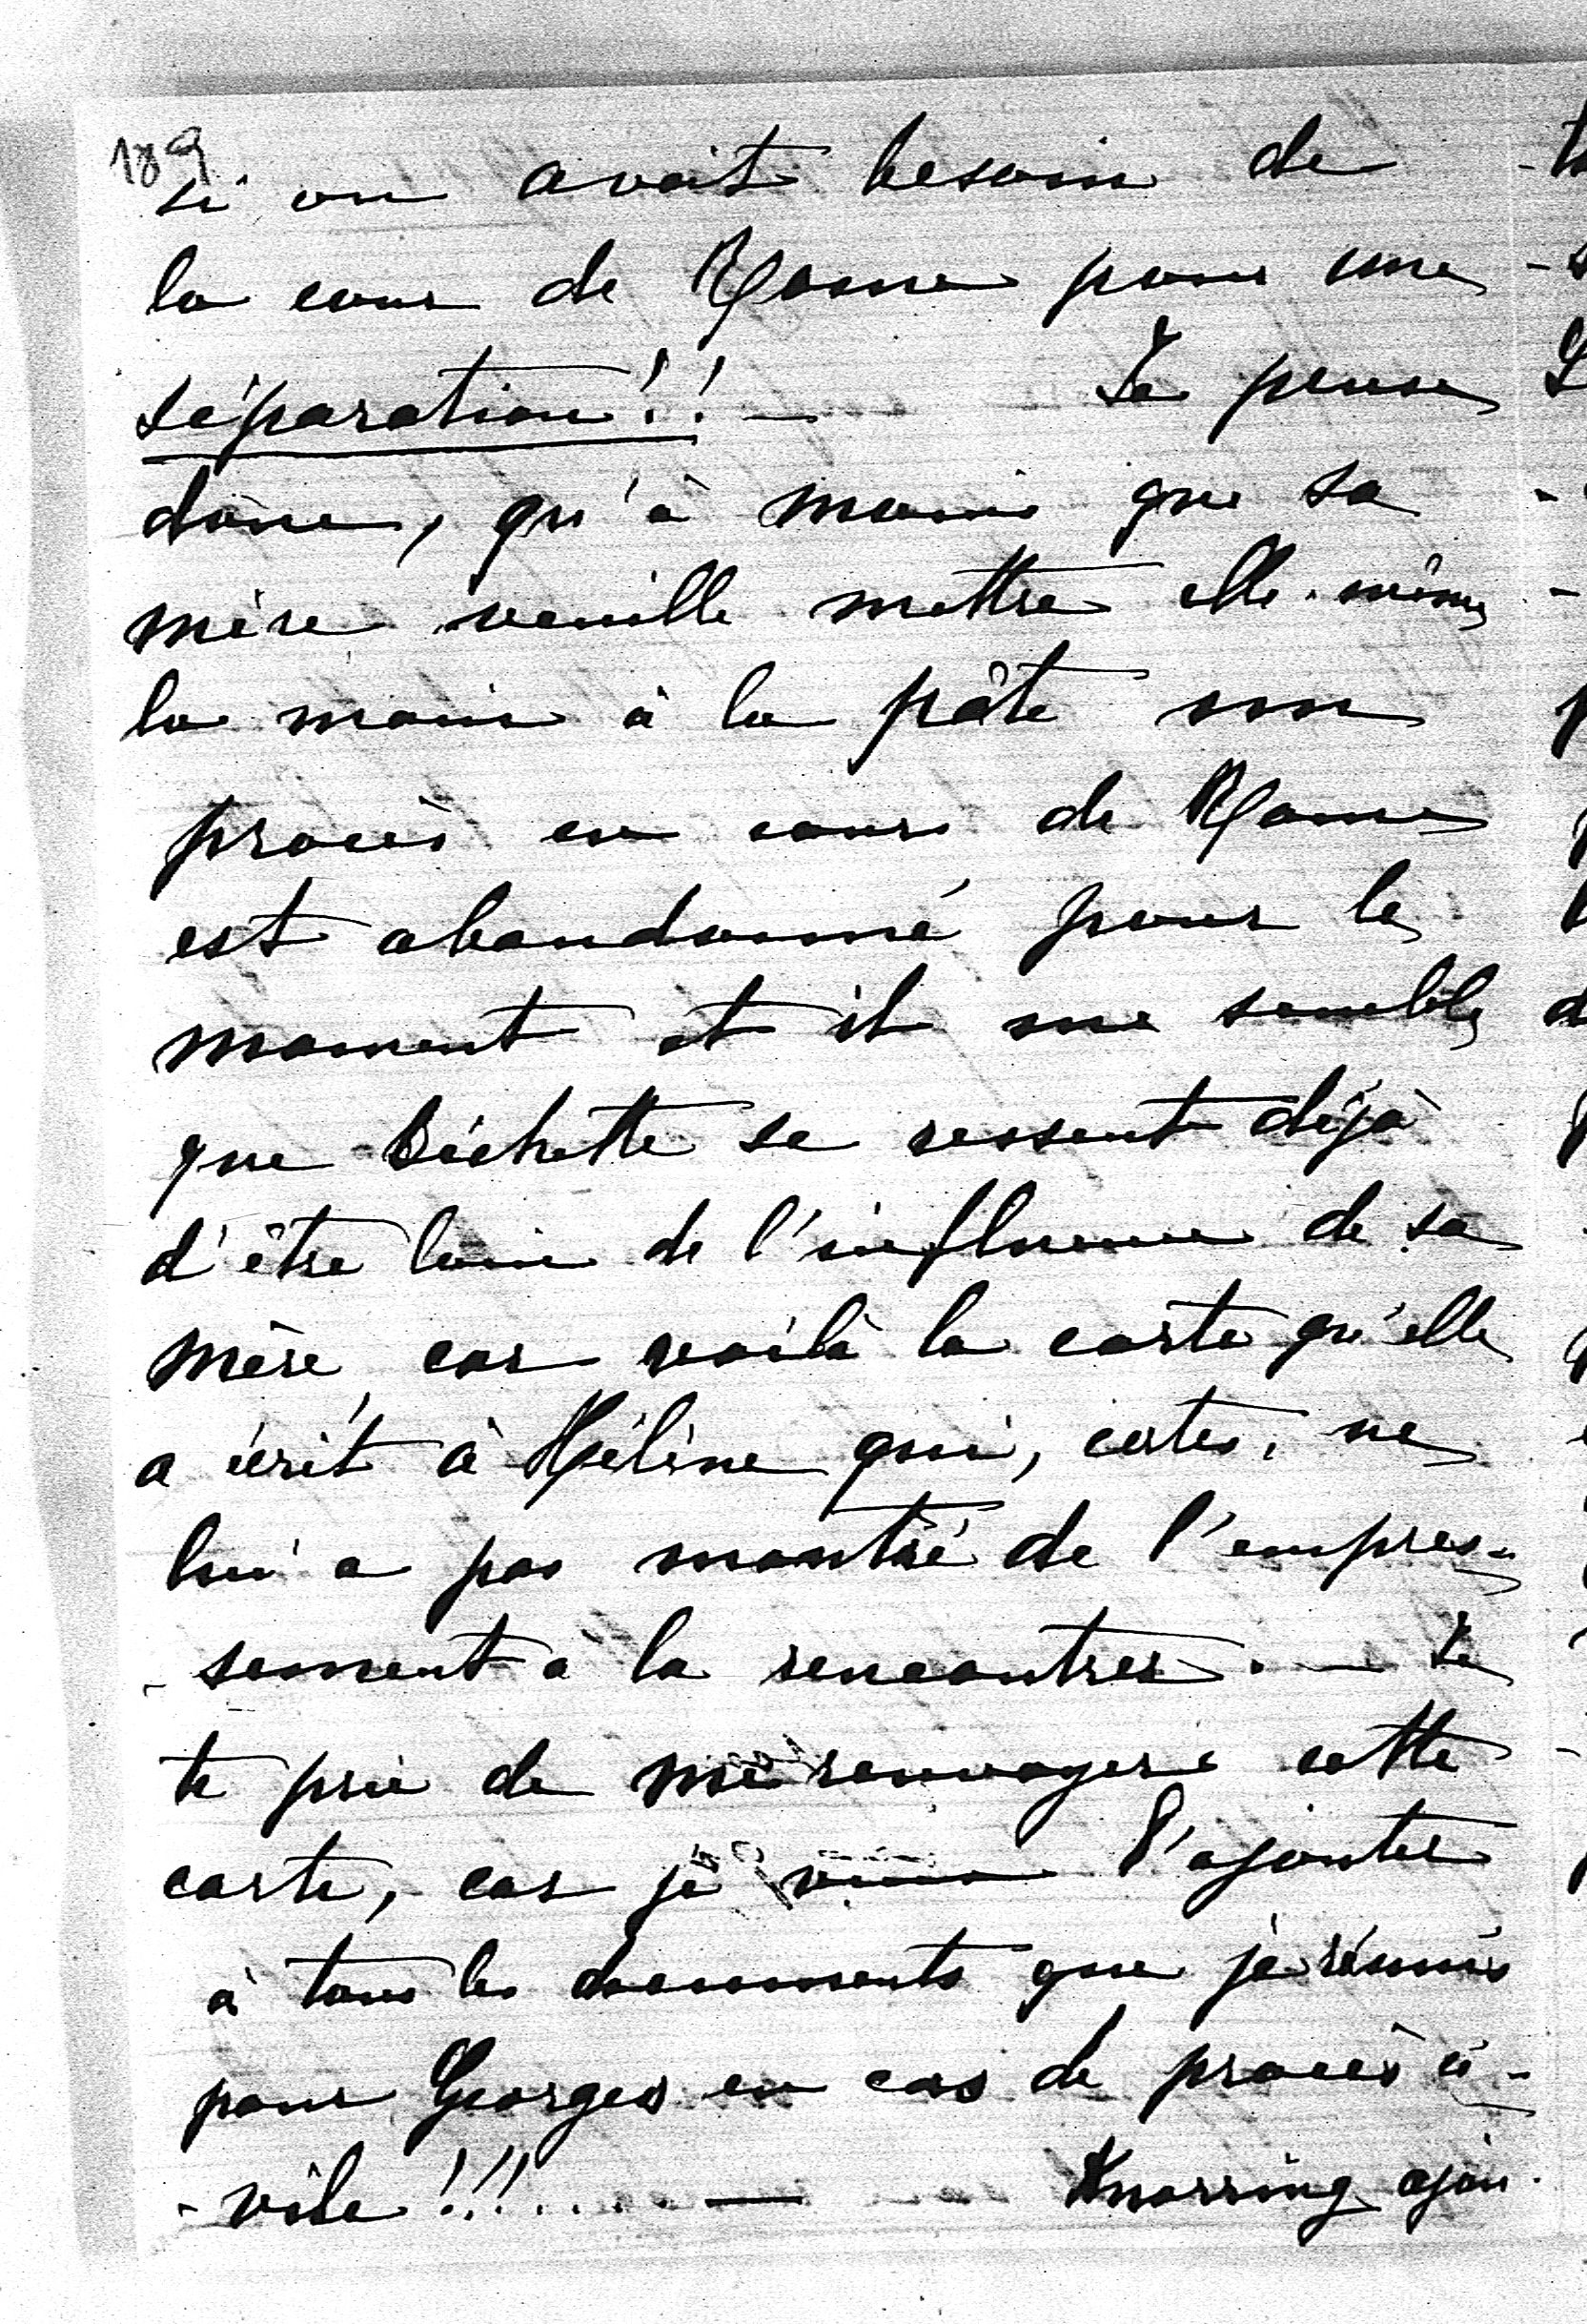 189
si on avait besoin de
la cour de Rome pour une
séparation!! — Je pense
donc, qu'à moins que sa
mère veuille mettre elle-même
la main à la pâte son
procès en cour de Rome
est abandonné pour le
moment et il me semble
que Bichette se ressent déjà
d'être loin de l'influence de sa
mère, car voilà la carte qu'elle
a écrit à Hélène qui, certes, ne
lui a pas montré de l'empres-
-sement à la rencontrer. — Je
te prie de me renvoyer cette
carte, car je veux l'ajouter
à tous les documents que je réunis
pour Georges en cas de procès ci-
-vile!!!.... — Knorring ajou-